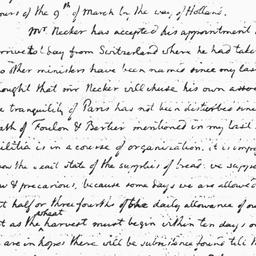 ours of the 9th of March by the way of Holland.
Mr Necker has accepted his appointment
arrive to day from Switzerland where he had take
o other ministers have been named since my last
hought that mr Necker will chuse his own asso
e tranquility of Paris has not been disturbed since
eath of Foulon & Bertier mentioned in my last
ilitia is in a course of organization. it is impo
now the real state of the supplies of bread. we suppo
w & precarious, because some days we are allowed
t half or three fourths of the daily allowance of ou
t as the wheat harvest must begin within ten days o
are in hopes there will be subsistence found till th